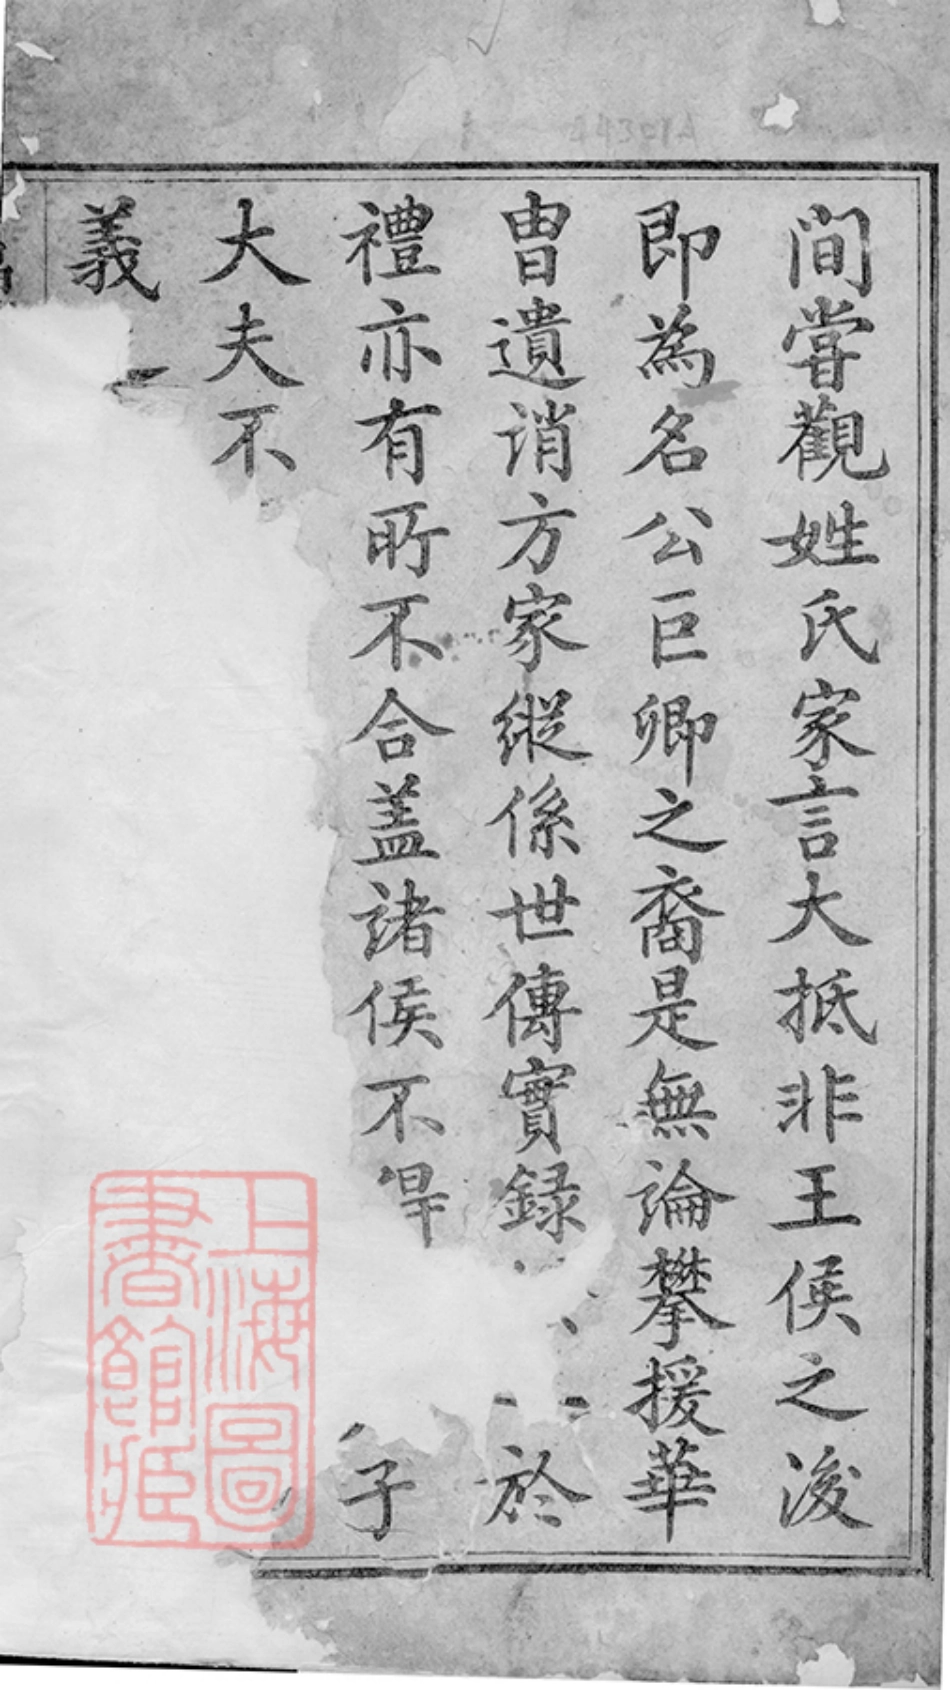 间嘗觀姓氏家言大抵非王侯之浚
即為名公巨卿之裔是無論攀援華
冑遺誚方家縱係世傳實録於
禮亦有所不合盖諸侯不得子
大夫不
義
上海圖
書館藏